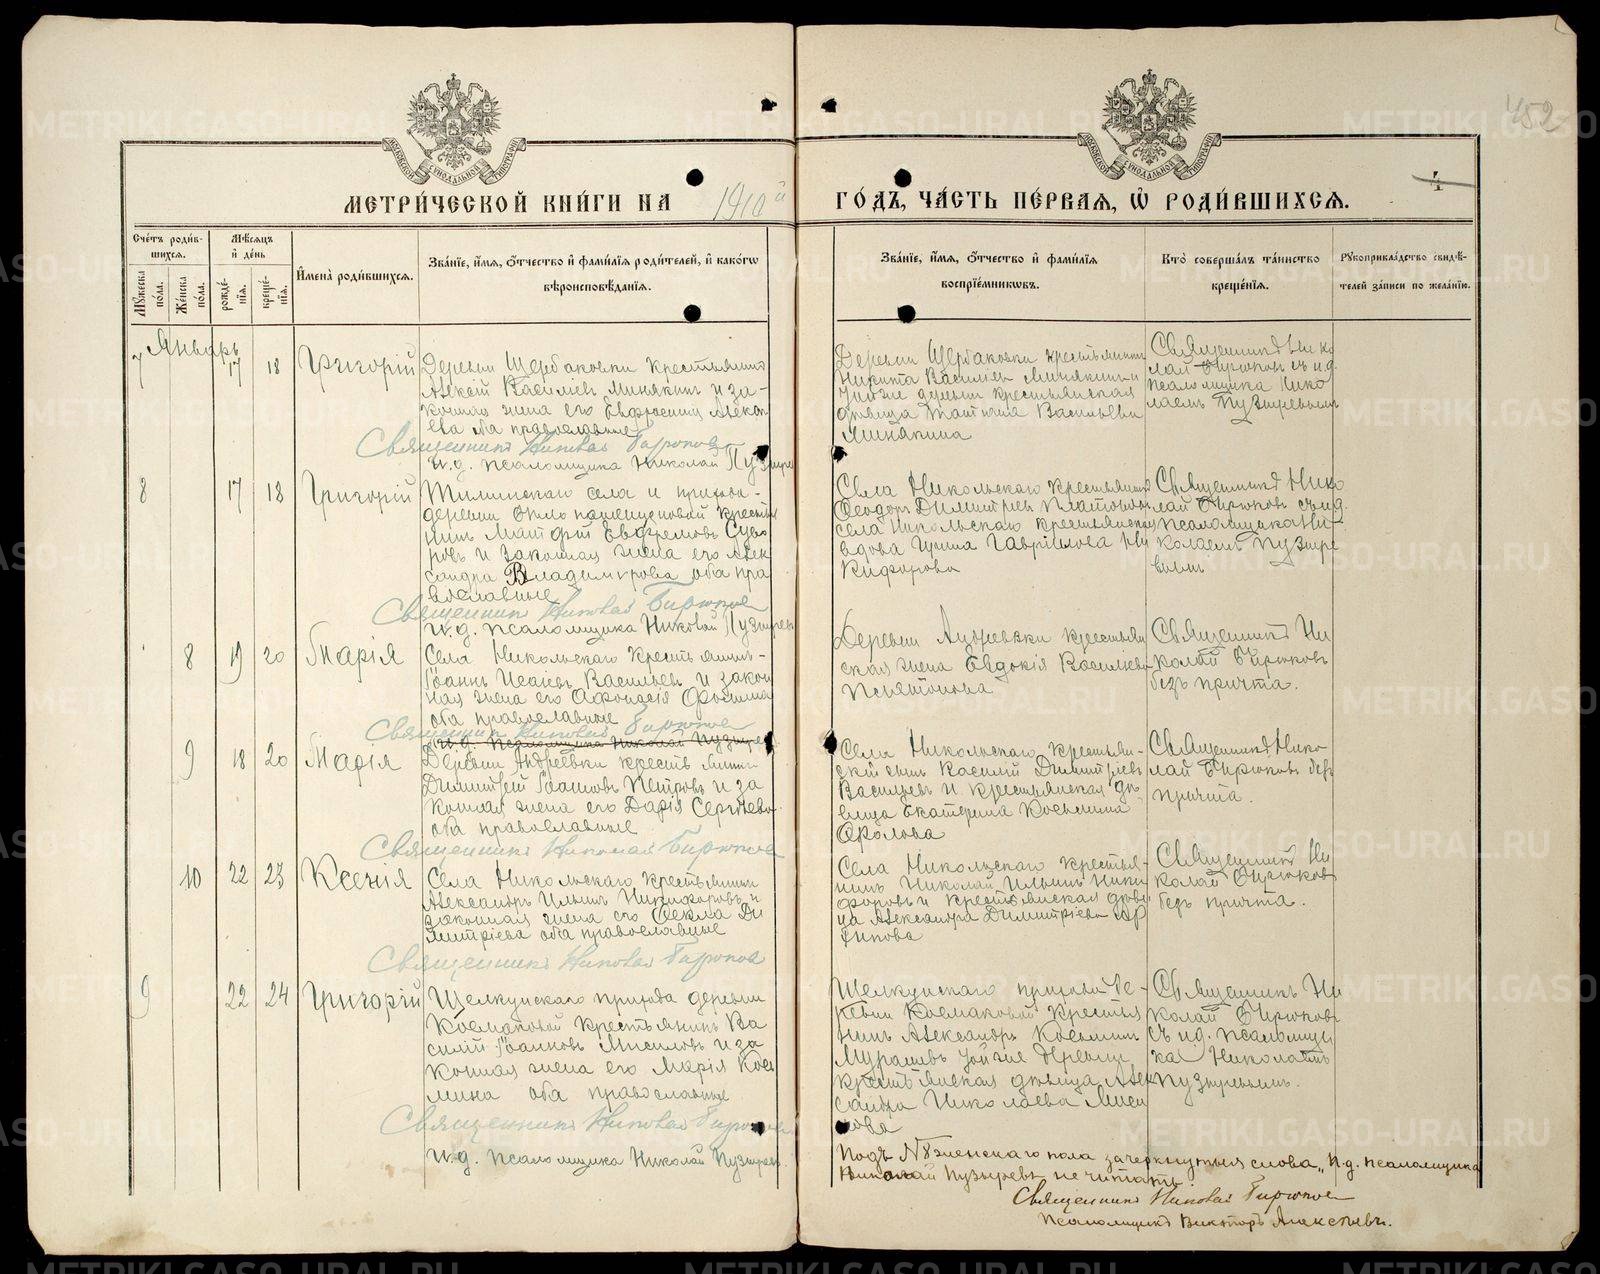 452
МОСКОВСКОЙ СѴНОДАЛЬНОЙ ТИПОГРАФІИ
МОСКОВСКОЙ СѴНОДАЛЬНОЙ ТИПОГРАФІИ
МЕТРИ́ЧЕСКОЙ КНИ́ГИ НА 1910й ГО́ДЪ, ЧА́СТЬ ПЕ́РВАЯ, Ѡ҆ РОДИ́ВШИХСѦ.
4
Сче́тъ роди́вшихся.
Мѣ́сяцъ и҆ де́нь
Мꙋ́жеска по́ла.
Же́нска по́ла.
рожде́нїя.
креще́нїя.
И҆мена̀ роди́вшихся.
Зва́нїе, и҆́мя, ѻ҆́тчество и҆ фами́лїя роди́телей, и҆ како́гѡ
вѣроисповѣ́данїя.
Зва́нїе, и҆́мя, ѻ҆́тчество и҆ фами́лїя
воспрїе́мникѡвъ.
Кто̀ соверша́лъ та́инство
креще́нїя.
Рꙋкоприкла́дство свидѣ́-
телей за́писи по жела́нїю.
Январь
7 17 18 Григорій
Деревни Щербаковки крестьянинъ
Алексій Василіевъ Минякинъ и за-
конная жена его Евфросинія Алексѣ
ева оба православные
Священникъ Николай Бирюковъ
И.д. псаломщика Николай Пузырев
Деревни Щербаковки крестьянинъ
Никита Василіевъ Минякинъ и
тойже деревни крестьянская
дѣвица Татіана Васильева
Минякина
Священникъ Нико
лай Бирюковъ съ и.д.
псаломщика Нико
лаемъ Пузыревымъ
8 17 18 Григорій
села и прихода-
деревни крестья
нинъ Матфій Евфремовъ Суво
ровъ и законная жена его Алек
сандра Владимірова оба пра
вославные
Священникъ Николай Бирюков
И.д. псаломщика Николай Пузырев
Села Никольскаго крестьянинъ
Ѳеодоръ Димитріевъ Платоновъ
села Никольскаго крестьянская
вдова Гавріилова Ни
кифорова
Священникъ Нико
лай Бирюковъ съ и.д.
псаломщика Ни-
колаемъ Пузыре
вымъ
8 19 20 Марія
Села Никольскаго крестьянинъ-
Іоаннъ Исаевъ Васильевъ и закон
ная жена его
оба православные
Священник Николай Бирюков
И.д. псаломщика Николай Пузырев
Деревни Андреевки крестьян
ская жена Евдокія Василіева
Священникъ Ни
колай Бирюковъ
безъ причта.
9 18 20 Марія
Деревни Андреевки крестьянинъ
Димитрій Іоанновъ Петровъ и за
конная жена его Дарія Сергіева
оба православные
Священникъ Николай Бирюков
Села Никольскаго крестьян-
скій сынъ Василій Димитріевъ
Васильевъ и крестьянская дѣ-
вица Екатерина Космина
Фролова
Священникъ Нико-
лай Бирюковъ безъ
причта.
10 22 23 Ксенія
Села Никольскаго крестьянинъ
Александръ Ильинъ Никифоровъ и
законная жена его Ѳекла Ди
митріева оба православные
Священникъ Николай Бирюков
Села Никольскаго крестья-
нинъ Николай Ильинъ Ники
форовъ и крестьянская дѣви
ца Александра Димитріева Ар
хипова
Священникъ Ни
колай Бирюковъ
безъ причта.
9 22 24 Григорій
Щелкунскаго прихода деревни
Космаковой крестьянинъ Ва
силій Іоанновъ Мисиловъ и за
конная жена его Марія Косъ
мина оба православные
Священникъ Николай Бирюков
И.д. псаломщика Николай Пузырев.
Щелкунскаго прихода де-
ревни Космаковой крестья
нинъ Александръ Косьминъ
Мурашевъ тойже деревни
крестьянская дѣвица Алек
сандра Николаева Миси
лова
Священникъ Ни
колай Бирюковъ
съ и.д. псаломщи
ка Николаемъ
Пузыревымъ.
Подъ № 8 женскаго пола зачеркнутыя слова „И.д. псаломщика
Николай Пузыревъ не читать
Священникъ Николай Бирюков
Псаломщикъ Викторъ Алексѣевъ.
METRIKI.GASO-URAL.RU